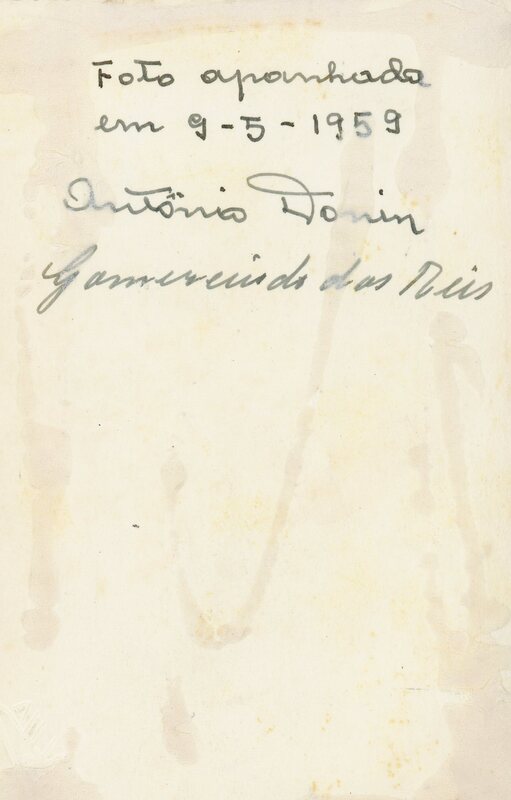 Foto apanhada
em 9-5-1959
Antônio Donin
dos Reis